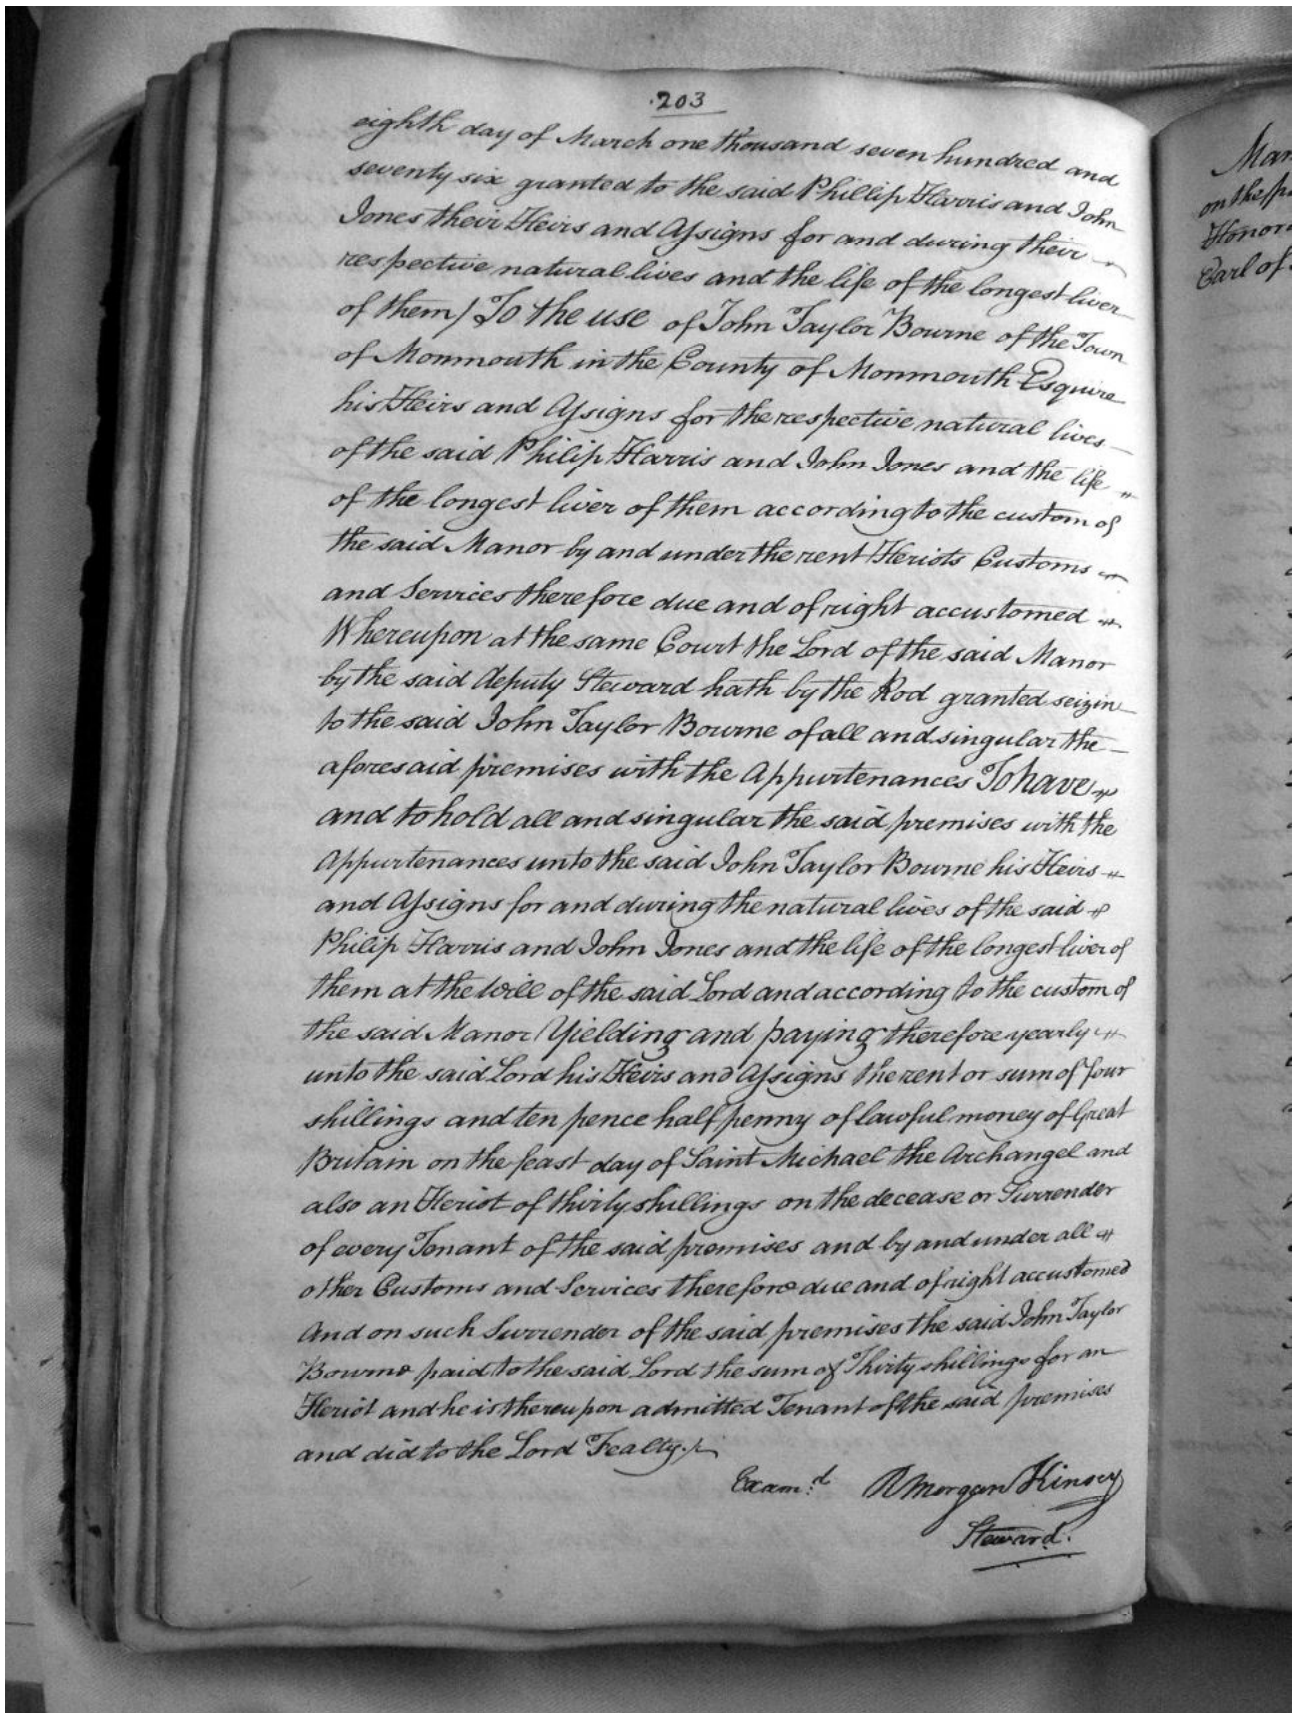 203
eighth day of March one thousand seven hundred and
seventy six granted to the said Phillip Harris and John
Jones their Heirs and Assigns for and during their
respective natural lives and the life of the longest liver
of them) To the use of John Taylor Bourne of the Town
of Monmouth in the County of Monmouth Esquire
his Heirs and Assigns for the respective natural lives
of the said Philip Harris and John Jones and the life
of the longest liver of them according to the custom of
the said Manor by and under the rent Heriots Customs
and Services therefore due and of right accustomed
Whereupon at the same Court the Lord of the said Manor
by the said deputy Steward hath by the Rod granted seizin
to the said John Taylor Bourne of all and singular the
aforesaid premises with the Appurtenances To have
and to hold all and singular the said premises with the
Appurtenances unto the said John Taylor Bourne his Heirs
and Assigns for and during the natural lives of the said
Philip Harris and John Jones and the life of the longest liver of
them at the Will of the said Lord and according to the custom of
the said Manor Yielding and paying therefore yearly
unto the said Lord his Heirs and Assigns the rent or sum of four
shillings and ten pence half penny of lawful money of Great
Britain on the feast day of Saint Michael the Archangel and
also an Heriot of thirty shillings on the decease or Surrender
of every Tenant of the said premises and by and under all
other Customs and Services therefore due and of right accustomed
And on such Surrender of the said premises the said John Taylor
Bourne paid to the said Lord the sum of Thirty shillings for an
Heriot and he is thereupon admitted Tenant of the said premises
and did to the Lord Fealty.
Exam:d R Morgan Kinsey
Steward.
Man
on the
Honor
Earl of